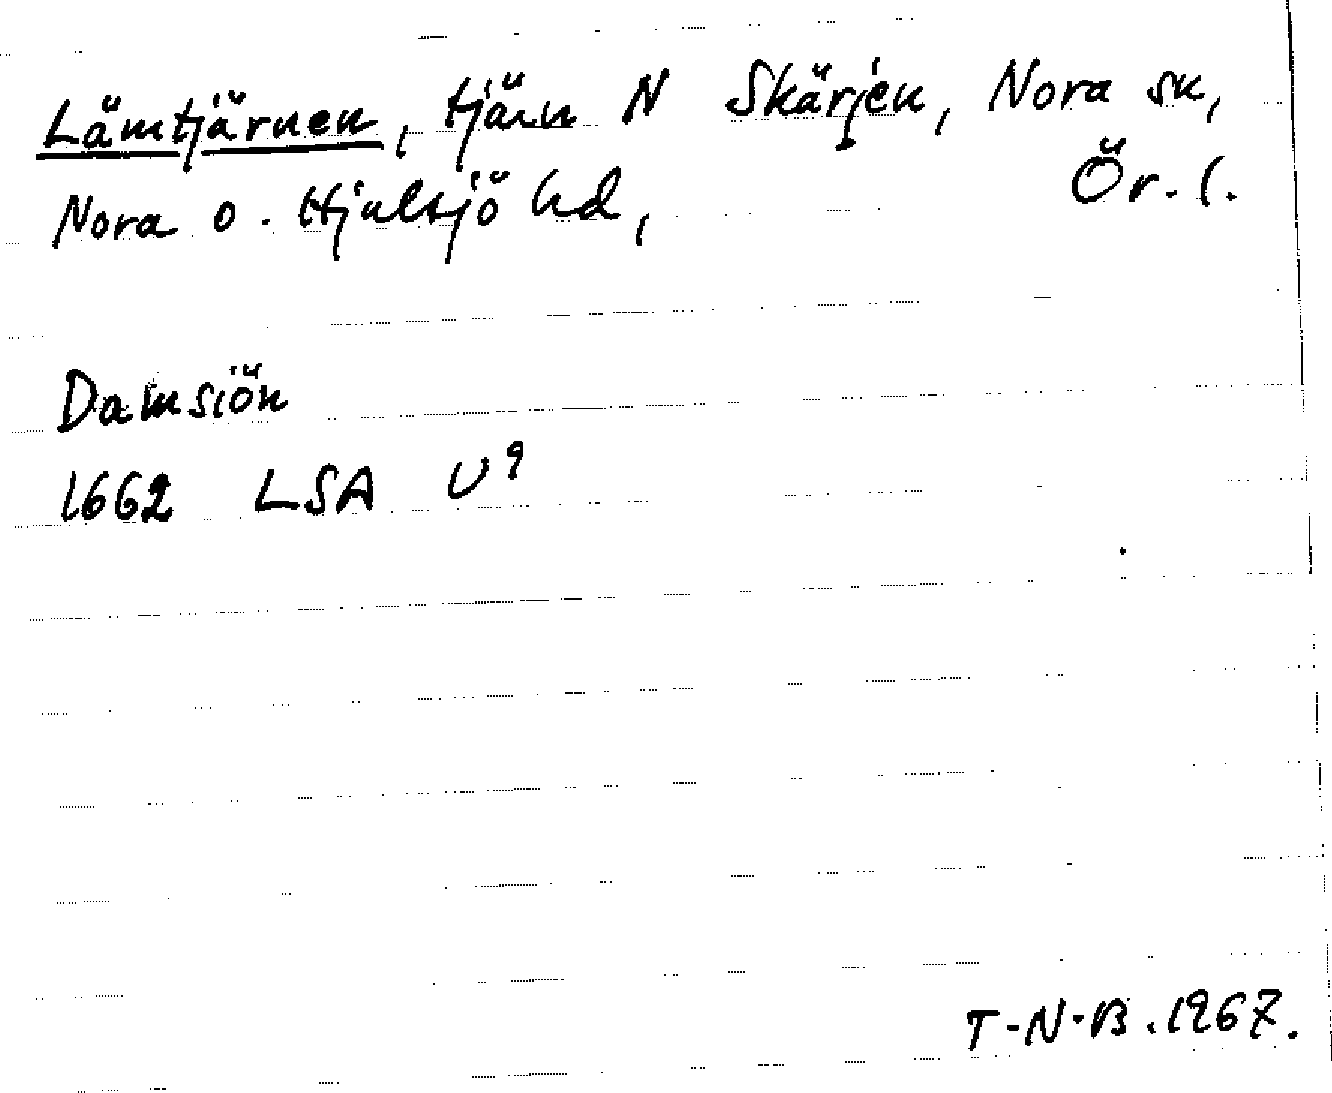 Lämtjärnen, tjärn N Skärjen, Nora sn,
Nora o. Hjulsjö hd, Ör. l.
Damsiön
1662 LSA U9
T-N-B. 1967.